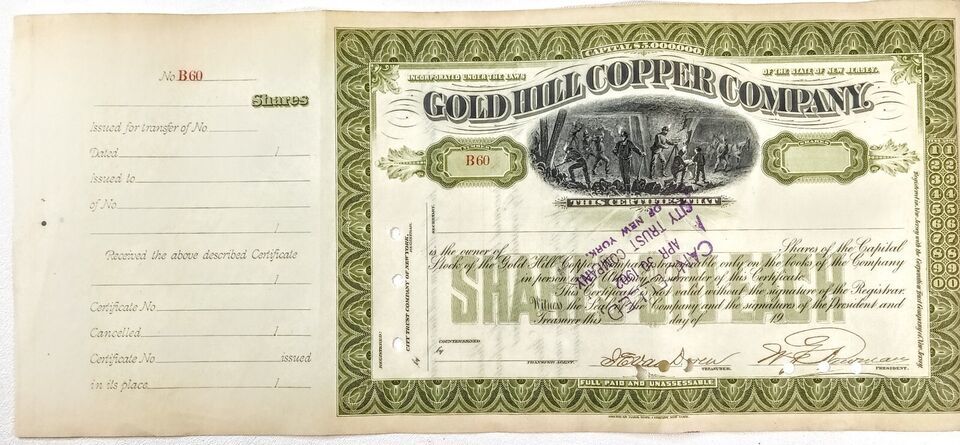 No B60
Shares
Issued for transfer of No
Dated /
Issued to
of No
/
Received the above described Certificate
/
Certificate No
Cancelled /
Certificate No issued
in its place /
CAPITAL $5.000000
INCORPORATED UNDER THE LAWS OF THE STATE OF NEW JERSEY.
GOLD HILL COPPER COMPANY.
NUMBER
B60
SHARES
THIS CERTIFIES THAT
is the owner of Shares of the Capital
Stock of the Gold Hill Copper only on the books of the Company
in person surrender of this Certificate.
This Certificate valid without the signature of the Registrar.
Witness the Seal Company and the signatures of the President and
Treasurer this day of 19
SHARES EACH
CANCELLED
APR 30 1902
CITY TRUST COMPANY
OF NEW YORK
REGISTERED:
CITY TRUST COMPANY OF NEW YORK,
REGISTRAR.
by
SECRETARY.
COUNTERSIGNED
by
TRANSFER AGENT.
TREASURER.
PRESIDENT.
FULL PAID AND UNASSESSABLE
Registered in New Jersey with the Corporation Trust Company of New Jersey
11
22
33
44
55
66
77
88
99
00